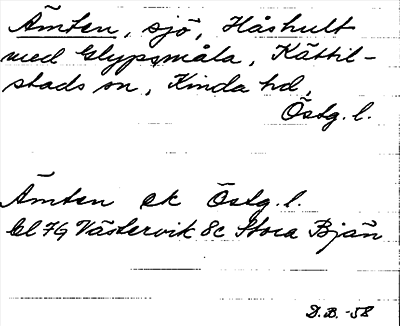 Ämten, sjö, Håshult
med Glypsmåla, Kättil-
stads sn, Kinda hd,
Östg. l.
Ämten ek Östg. l.
Bl 7G Västervik 8c Stora Bjän
D.B. -58